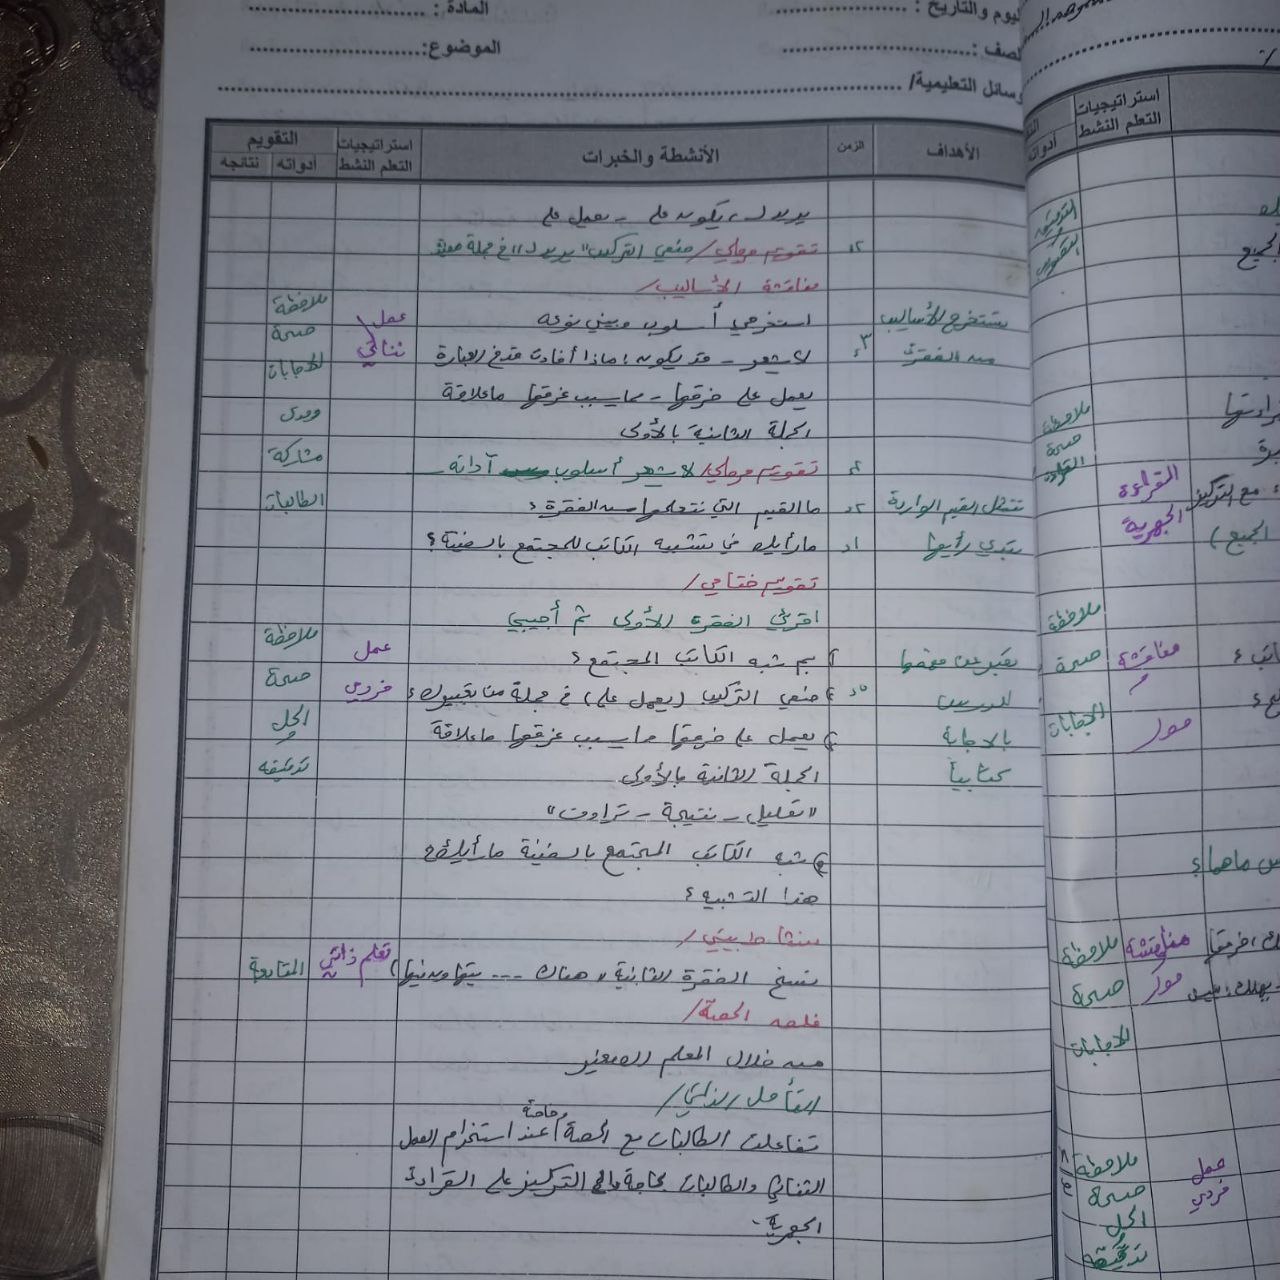 اليوم والتاريخ : ........................ المادة : ........................
الصف : ........................ الموضوع: ........................
وسائل التعليمية/ ........................
الأهداف الزمن الأنشطة والخبرات استراتيجيات التعلم النشط التقويم أدواته نتائجه
يريد لـ ، يكون على - يعمل على
٢د تقويم مرحلي/ ضعي التركيب "يريد لـ" في جملة
مناقشة الأساليب/
يستخرج الأساليب استخرجي أسلوب وبيني نوعه عمل ملاحظة
من الفقرة ٣د لا شعر - قد يكون: ماذا أفادت قد في العبارة ثنائي صحة
يعمل على خرقها - مما يسبب غرقها ما علاقة الاجابات
الجملة الثانية بالأولى ومدى
٢د تقويم مرحلي/ لا شعر أسلوب آداته مشاركة
تتمثل القيم الواردة ٢د ما القيم التي نتعلمها من الفقرة؟ الطالبات
تبدي رأيها ١د ما رأيك في تشبيه الكاتب للمجتمع بالسفينة؟
تقويم ختامي/
اقرئي الفقرة الأولى ثم أجيبي ملاحظة
تعبر عن فهمها ١) بم شبه الكاتب المجتمع؟ عمل صحة
للدرس ٥د ٢) ضعي التركيب (يعمل على) في جملة من تعبيرك؟ فردي الحل
بالاجابة ٣) يعمل على خرقها مما يسبب غرقها ما علاقة تدقيقه
كتابياً الجملة الثانية بالأولى
"تعليل - نتيجة - ترادف"
٤) شبه الكاتب المجتمع بالسفينة ما رأيك في
هذا التشبيه؟
نشاط بيتي/
نسخ الفقرة الثانية "هناك ... بيتها ودينها) تعلم ذاتي المتابعة
غلق الحصة/
من خلال المعلم الصغير
التأمل الذاتي/
تفاعلت الطالبات مع الحصة وخاصة عند استخدام العمل
الثنائي والطالبات بحاجة إلى التركيز على القراءة
الجهرية.
استراتيجيات التعلم النشط
أدواته
الجميع
ملاحظة
صحة
القراءة
القراءة الجهرية
مع التركيز
الجميع)
ملاحظة
مناقشة صحة
حوار الاجابات
س ما هما؟
مناقشة ملاحظة
حوار صحة
الاجابات
عمل ملاحظة
فردي صحة
الحل
تدقيقه